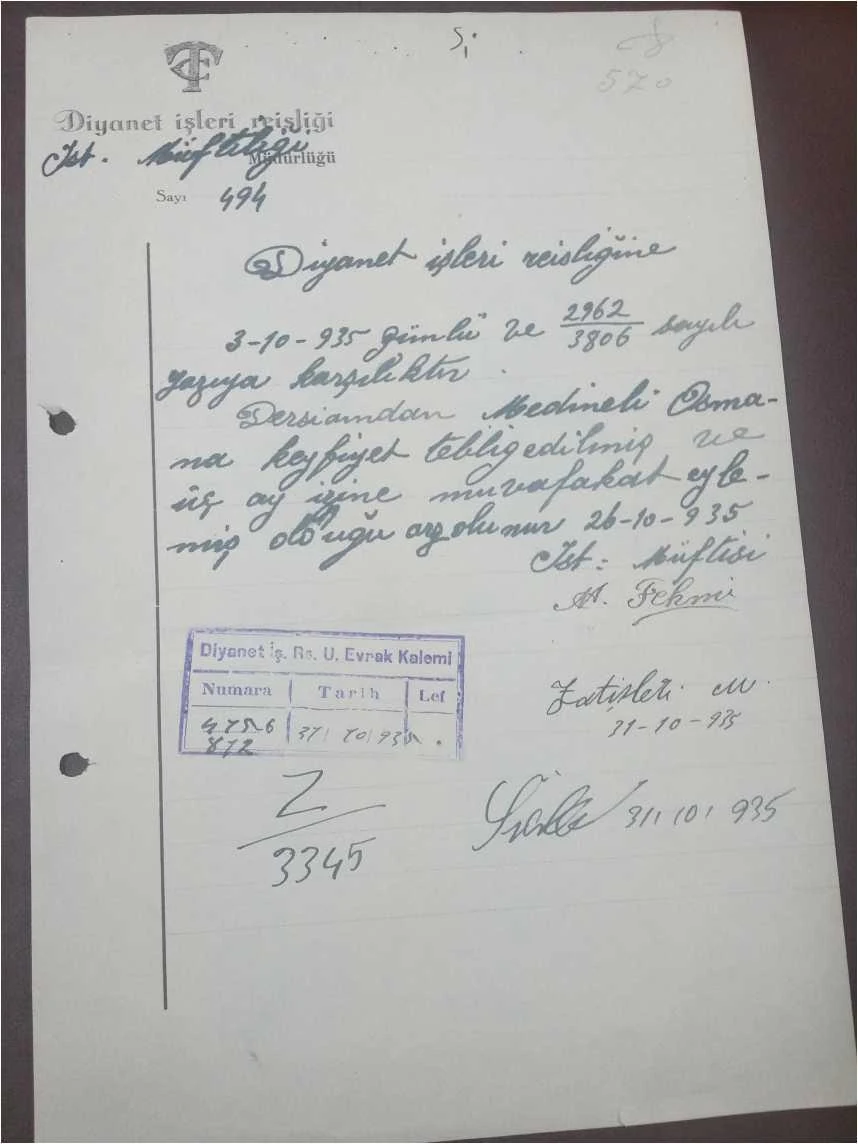 TC
570
Diyanet işleri reisliği
Ist. Müftiliği
Müdürlüğü
Sayı 494
Diyanet işleri reisliğine
3-10-935 günlü ve 2962/3806 sayılı
yazıya karşılıktır.
Dersiamdan Medineli Osma-
na keyfiyet tebliğedilmiş ve
üç ay izine muvafakat eyle-
miş olduğu arzolunur 26-10-935
Ist: Müftisi
M. Fehmi
Diyanet İş. Rs. U. Evrak Kalemi
Numara Tarih Lef
4756 31 10 935
872
Zatişleri M.
31-10-935
31 10 935
Z
3345